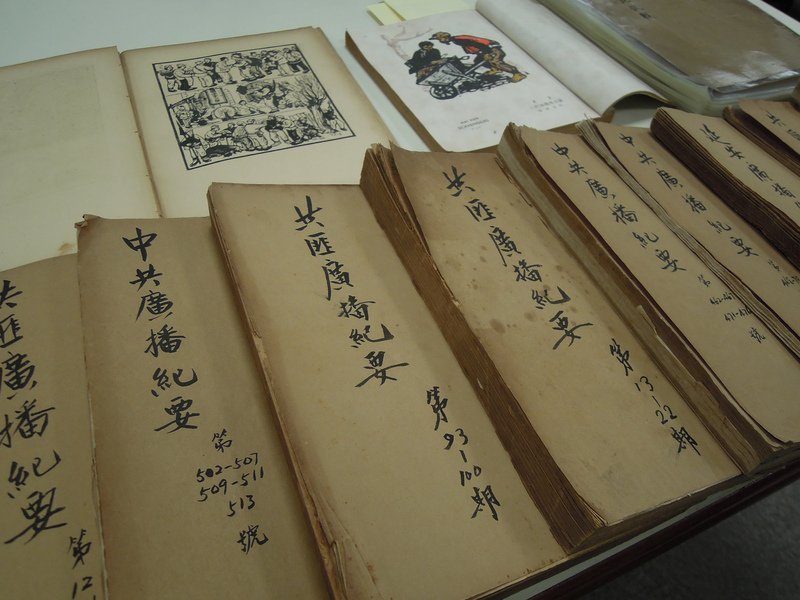 共匪廣播紀要
第
12
中共廣播紀要
第
502-507
509-511
513
號
共匪廣播紀要
第93-100期
共匪廣播紀要
第13-22期
中共廣播紀要
第
號
中共廣播紀要
第
共匪廣播紀要
共